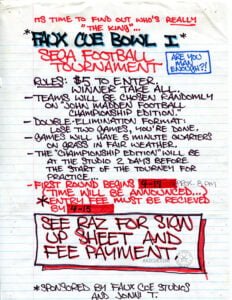 ITS TIME TO FIND OUT WHO'S REALLY
"THE KING"...
*FAUX COE BOWL I*
SEGA FOOTBALL
TOURNAMENT
ARE YOU
MAN
ENOUGH?!
RULES: $5 TO ENTER.
WINNER TAKE ALL.
- TEAMS WILL BE CHOSEN RANDOMLY
ON "JOHN MADDEN FOOTBALL
CHAMPIONSHIP EDITION."
- DOUBLE-ELIMINATION FORMAT:
LOSE TWO GAMES, YOU'RE DONE.
- GAMES WILL HAVE 5 MINUTE QUARTERS
ON GRASS IN FAIR WEATHER.
- THE "CHAMPIONSHIP EDITION" WILL BE
AT THE STUDIO 2 DAYS BEFORE
THE START OF THE TOURNEY FOR
PRACTICE...
- FIRST ROUND BEGINS 4-15
(TIME WILL BE ANNOUNCED...)
*ENTRY FEE MUST BE RECIEVED
BY 4-13
SEE RAZ FOR SIGN
UP SHEET AND
FEE PAYMENT.
*SPONSORED BY FAUX COE STUDIOS
AND JONNI T.